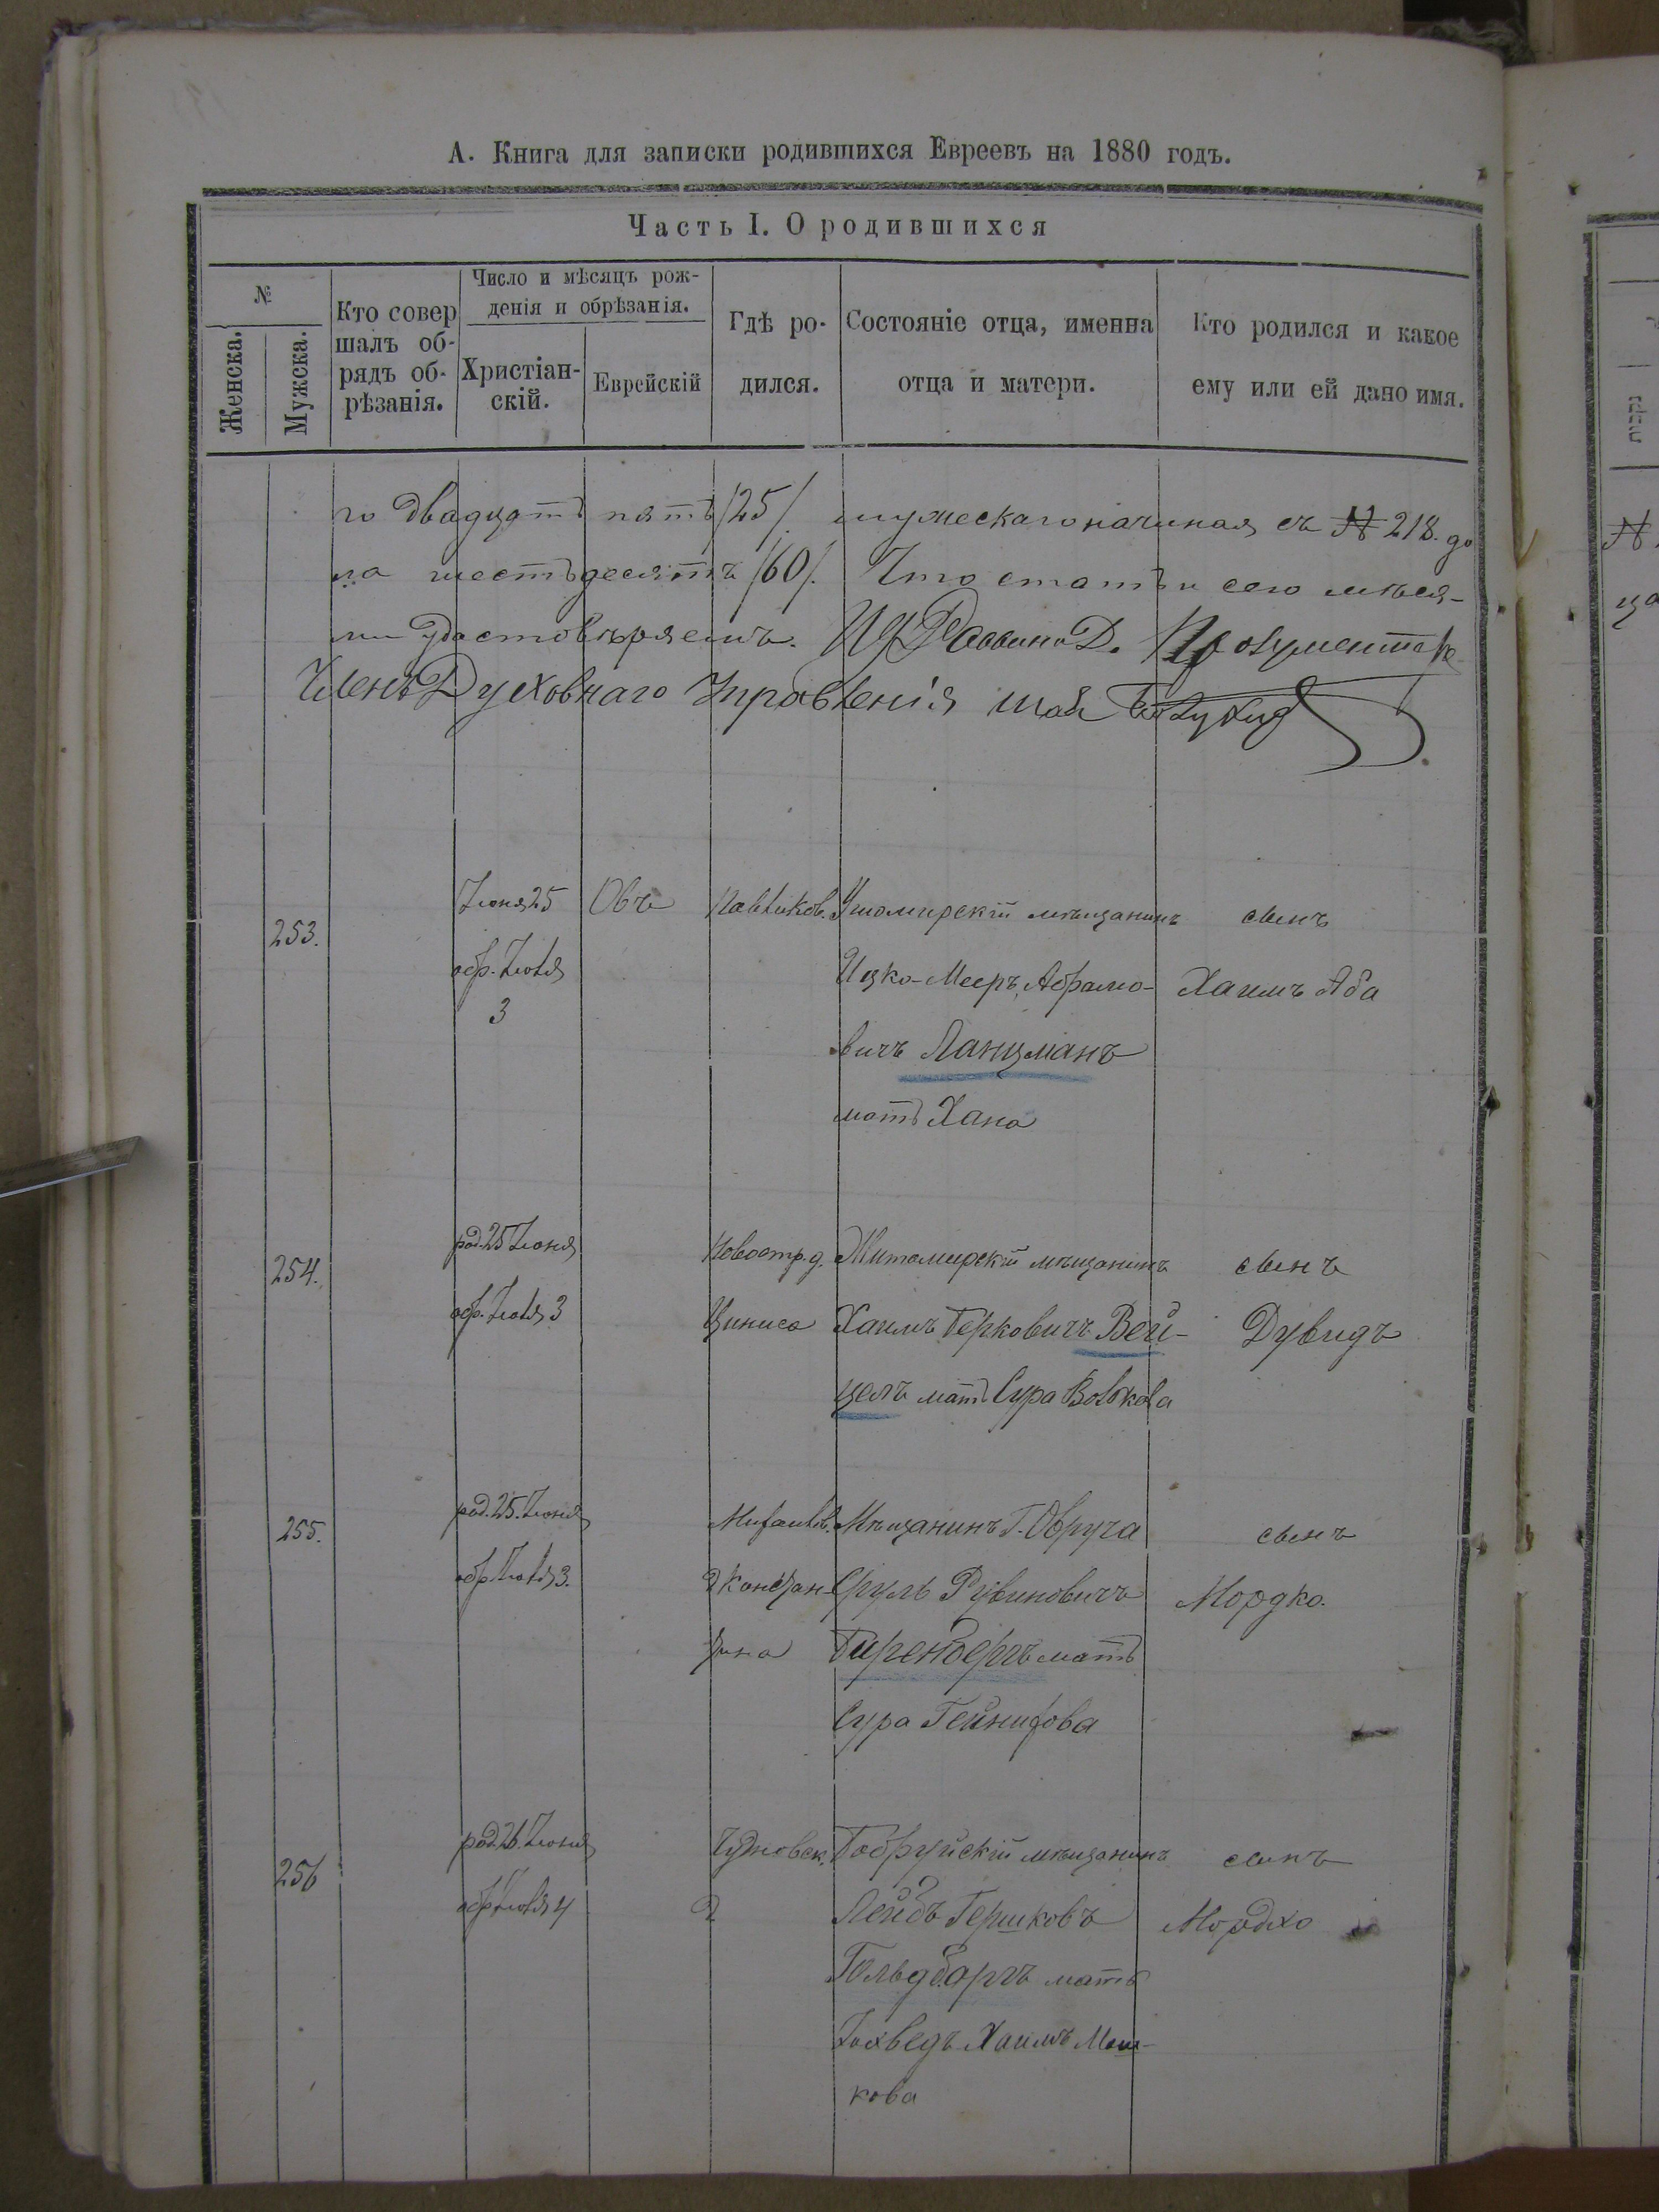 А. Книга для записки родившихся Евреевъ на 1880 годъ.
Часть I. О родившихся
№
Женска.
Мужска.
Кто совер
шалъ об-
рядъ об-
рѣзанія.
Число и мѣсяцъ рож-
денія и обрѣзанія.
Христіан-
скій.
Еврейскій
Гдѣ ро-
дился.
Состояніе отца, именна
отца и матери.
Кто родился и какое
ему или ей дано имя.
го двадцать пять /25/. мужескаго начиная съ № 218. до
на шестьдесятъ /60/. Что статьи сего мѣся-
ми удостовѣряемъ.
Членъ Духовнаго Управленія
253.
Іюня 25
обр. Іюля
3
Павликов.
Ушомирскій мѣщанинъ
Ицко-Мееръ Абрамо-
вичъ Ланцманъ
мать Хана
сынъ
Хаимъ Аба
254.
род. 25 Іюня
обр. Іюля 3
Новостр. д.
Житомирскій мѣщанинъ
Хаимъ Берковичъ Вей-
целъ мать Сура Волькова
сынъ
Дувидъ
255.
род. 25. Іюня
обр. Іюля 3.
Михаилов.
Мѣщанинъ Г. Овруча
Сруль Рувиновичъ
Биренбергъ мать
Сура
сынъ
Мордко.
256
род. 26. Іюня
обр. Іюля 4
Чудновск.
д
Бобруйскій мѣщанинъ
Лейбъ Гершковъ
Гольдбаргъ мать
Іохведъ Хаимъ Мош-
кова
сынъ
Мордхо